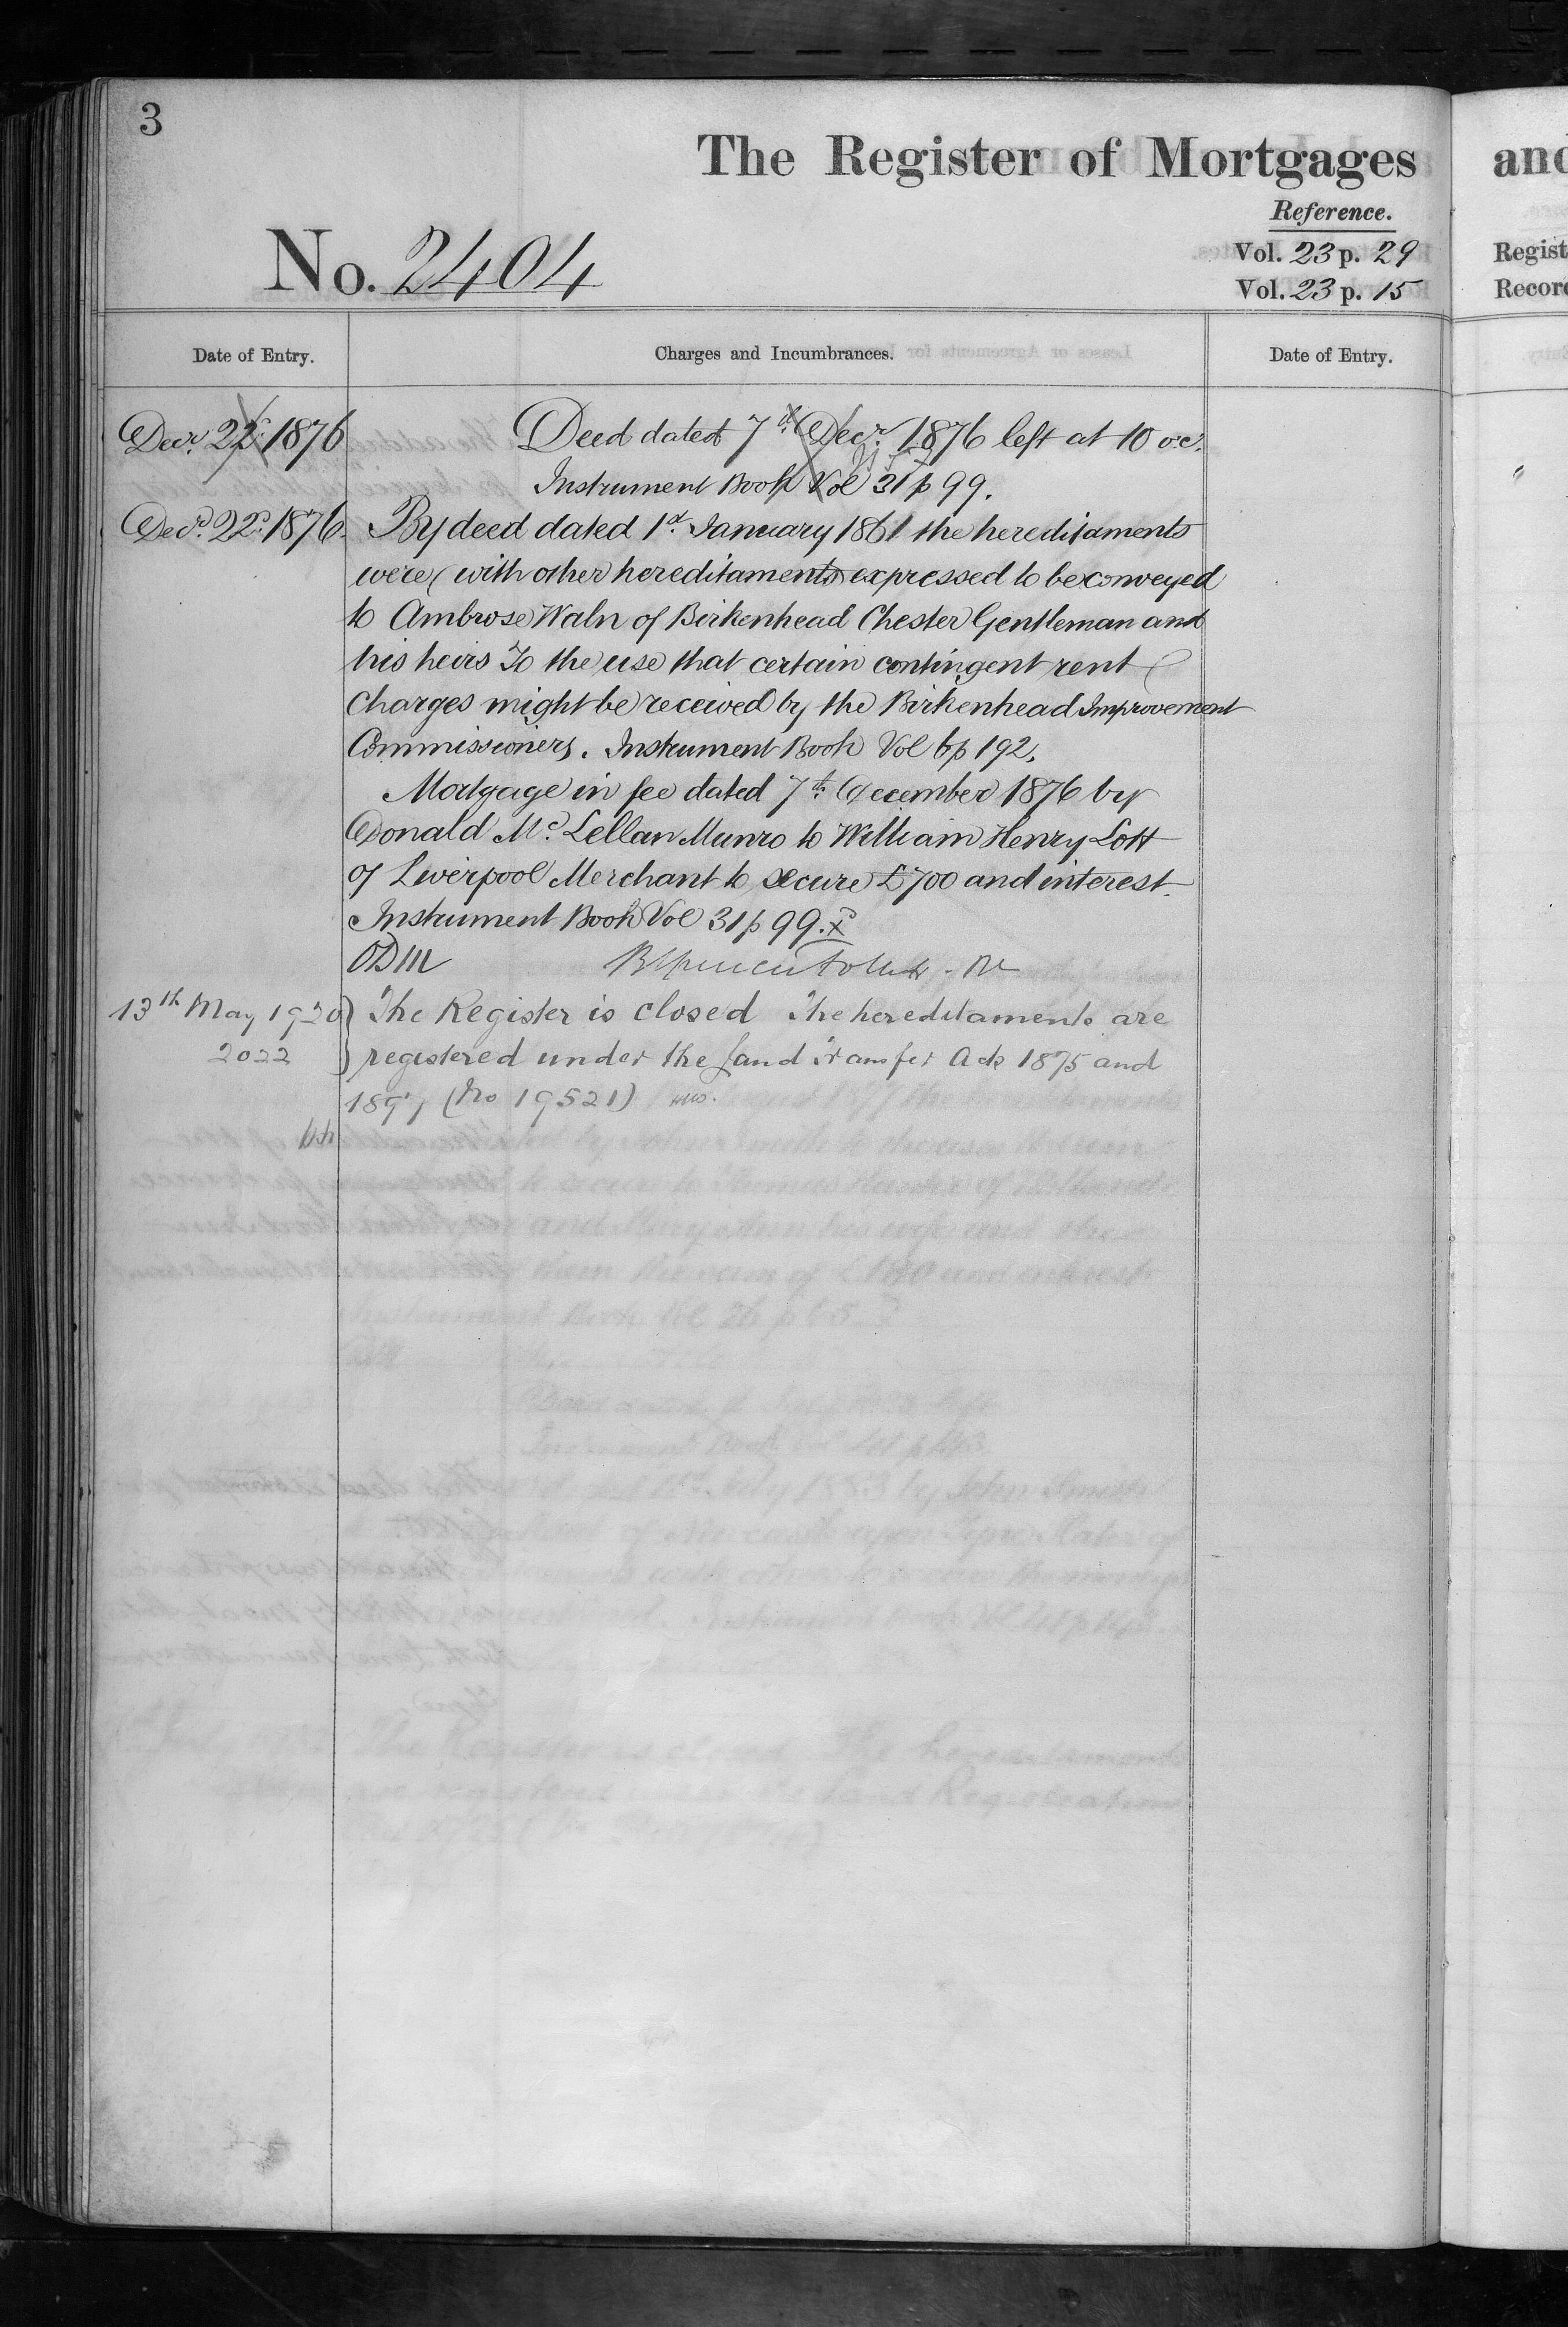 3
The Register of Mortgages
and
Reference.
No. 2404
Vol. 23 p. 29
Vol. 23 p. 15
Date of Entry.
Charges and Incumbrances.
Date of Entry.
Decr. 22d. 1876
Deed dated 7th. Decr. 1876 left at 10 o.c.
Instrument Book Vol 31 p 99.
Decr. 22d. 1876.
By deed dated 1st. January 1861 the hereditaments
were (with other hereditaments) expressed to be conveyed
to Ambrose Waln of Birkenhead Chester Gentleman and
his heirs To the use that certain contingent rent
charges might be received by the Birkenhead Improvement
Commissioners. Instrument Book Vol 6 p 192.
Mortgage in fee dated 7th. December 1876 by
Donald Mc. Lellan Munro to William Henry Lott
of Liverpool Merchant to secure £700 and interest
Instrument Book Vol 31 p 99.
13th May 1920
The Register is closed The hereditaments are
2022
registered under the Land Transfer Acts 1875 and
1897 (No 19521)